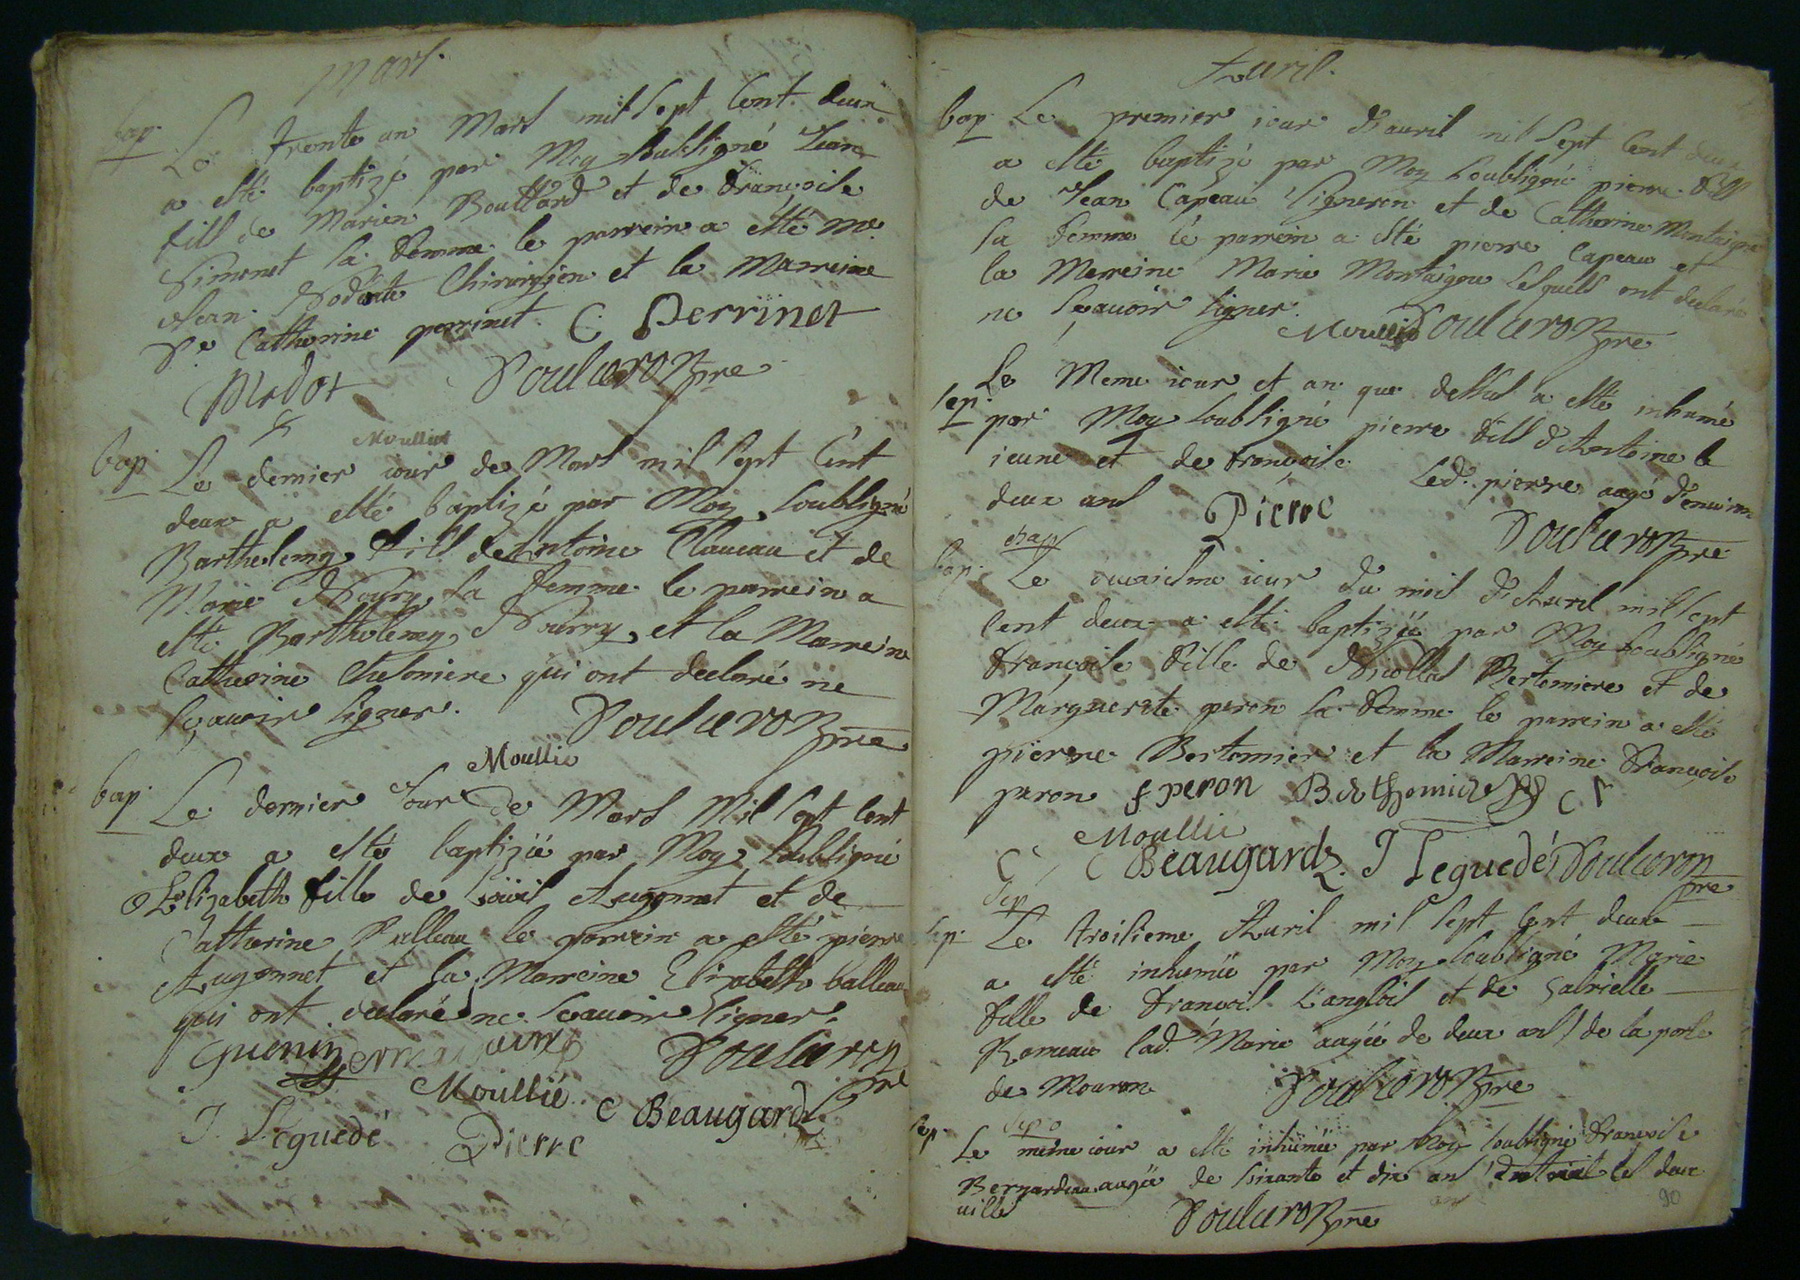 Mars.
bap. Le trente un Mars mil sept Cent deux
a esté baptizé par Moy soubsigné Jean
fils de Marien Bouttard et de françoise
Simonet sa femme le parrein a esté me
Jean Chirurgien et la Marreine
De Catherine perrinet. C. Perrinet
Poulueron pre
Moullié
bap. Le dernier iour de Mars mil sept Cent
deux a esté baptizé par Moy, soubsigné
Barthelemy, fils de Antoine Claueau et de
Marie Noury, sa femme le parrein a
esté Barthelemy, Nourry, et la Marreine
Catherine qui ont declaré ne
sçauoir signer. Poulueron pre
Moullié
bap. Le dernier Jour de Mars Mil sept Cent
deux a esté baptizée par Moy, soubsigné
Elizabeth fille de Louis Augonnet et de
Catherine Balleau le parrein a esté pierre
Augonnet et la Marreine Elizabeth balleau
qui ont declaré ne scauoir signer.
Guenin Poulueron pre
Moullié C Beaugard
J. Leguedé Pierre
Auril.
bap. Le premier iour d'auril mil sept Cent deux
a esté baptizé par Moy soubsigné pierre fils
de Jean Capeau Vigneron et de Catherine Montaigne
sa femme le parrein a esté pierre Capeau et
la Marreine Marie Montaigne lesquels ont declaré
ne sçauoir signer.
Moullié Poulueron pre
sep. Le Meme iour et an que dessus a esté inhumé
par Moy soubsigné pierre fils d'Antoine le
ieune et de françoise led. pierre aagé d'enuiron
deux ans Pierre Poulueron pre
chap
bap. Le deuxiesme iour du mois d'Auril mil sept
Cent deux a esté baptizée par Moy soubsigné
françoise fille de Nicollas Bertomiere et de
Marguerite peron sa femme le parrein a esté
pierre Bertomier et la Marreine françoise
peron f peron
Moullié
C Beaugard. J Leguedé Poulueron pre
sep
sep. Le troisieme Auril mil sept Cent deux
a esté inhumée par Moy soubsigné Marie
fille de françois Langlois et de Gabrielle
Rameau lad. Marie aagée de deux ans / de la porte
de Mouron Poulueron pre
sep
sep. Le meme iour a esté inhumée par Moy soubsigné françoise
Bernardeau aagée de soixante et dix ans les deux
villes Poulueron pre
90